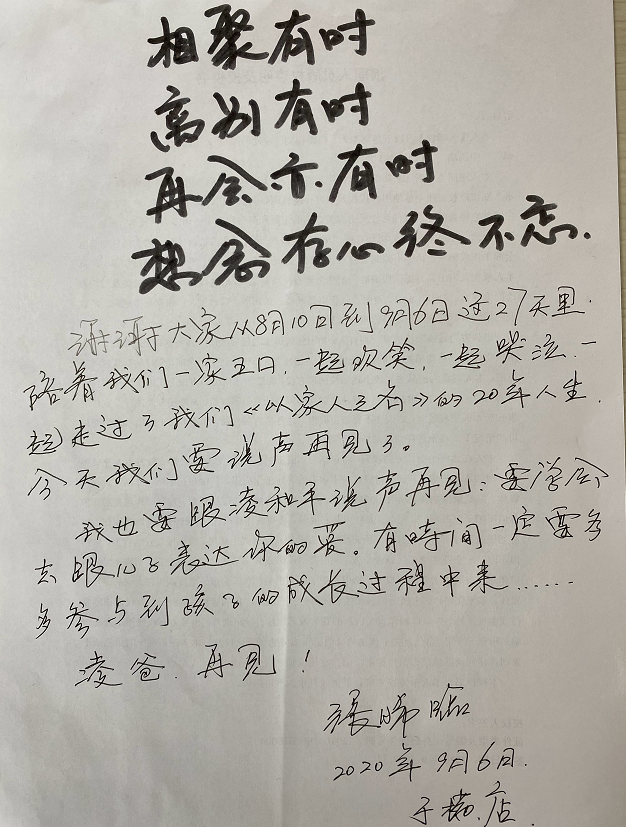 相聚有时
离别有时
再会亦有时
想念存心终不忘.
谢谢大家从8月10日到9月6日这27天里.
陪着我们一家五口,一起欢笑,一起哭泣.一
起走过了我们《以家人之名》的20年人生.
今天我们要说声再见了。
我也要跟凌和平说声再见:要学会
去跟儿子表达你的爱。有时间一定要多
多参与到孩子的成长过程中来……
凌爸.再见!
张晞临
2020年9月6日.
于 店